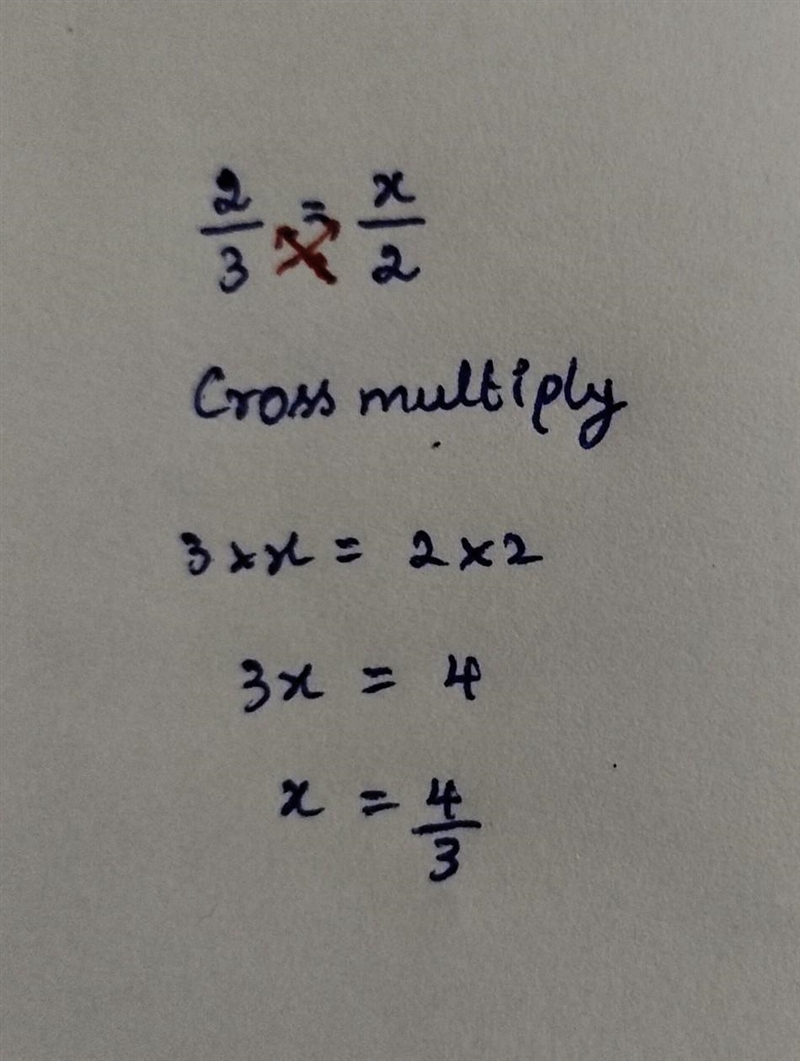 2/3 = x/2
Cross multiply
3 × x = 2 × 2
3x = 4
x = 4/3